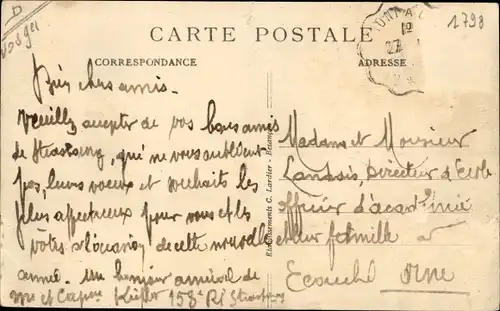 D
Vosges
1798
CARTE POSTALE
CORRESPONDANCE
ADRESSE
Bien chers amis.
Veuillez accepter de vos bons amis
de Strasbourg, qui ne vous oublient
pas, leurs voeux et souhaits les
plus affectueux pour vous et les
vôtres à l'occasion de cette nouvelle
année. Un bonjour amical de
Mme et 158e RI Strasbourg
Etablissements C. Lardier - Besançon
Madame et Monsieur
Directeur d'Ecole
officier d'académie
et leur famille à
Ecouché Orne